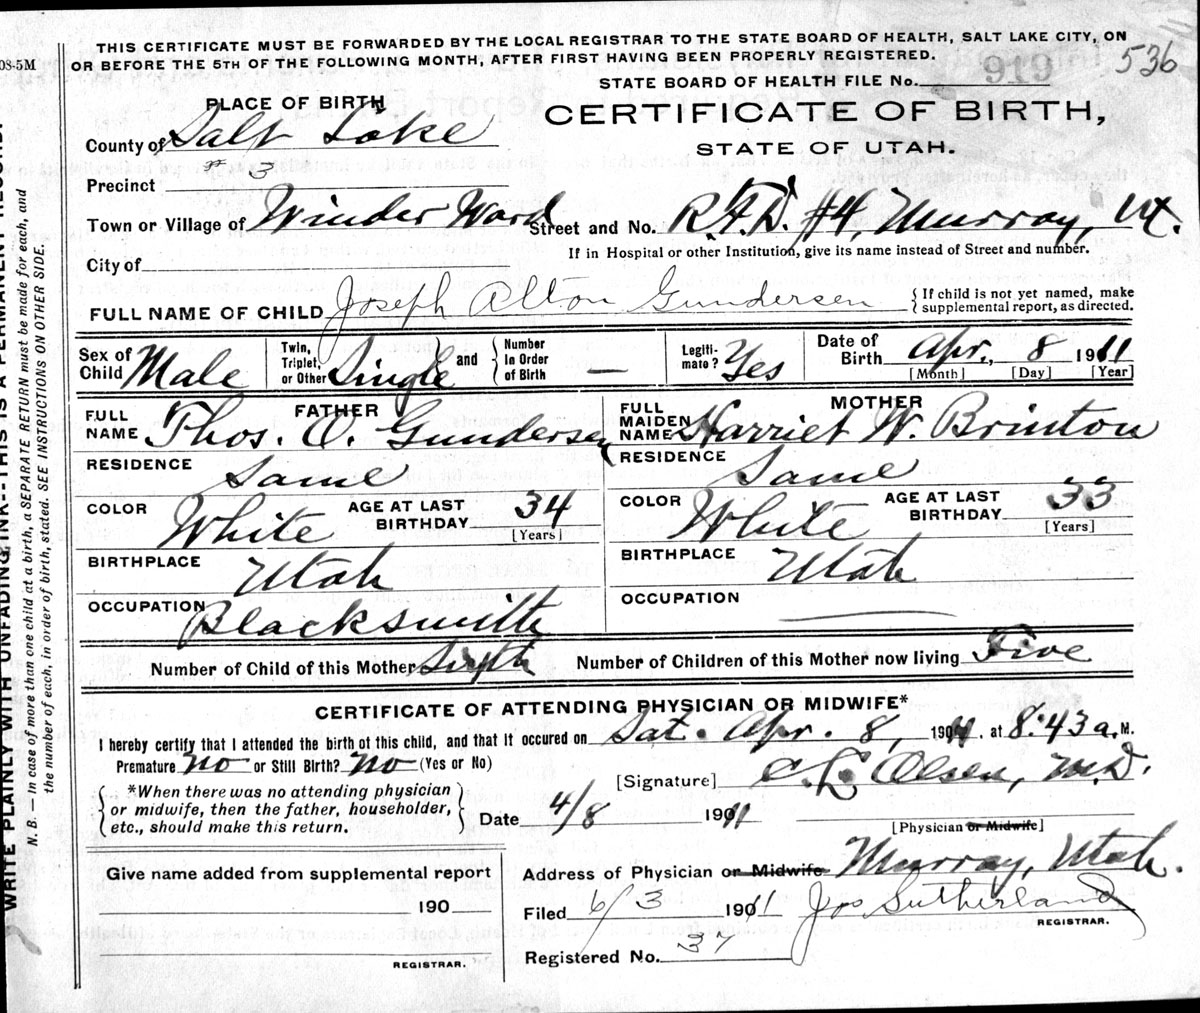 THIS CERTIFICATE MUST BE FORWARDED BY THE LOCAL REGISTRAR TO THE STATE BOARD OF HEALTH, SALT LAKE CITY, ON
OR BEFORE THE 5TH OF THE FOLLOWING MONTH, AFTER FIRST HAVING BEEN PROPERLY REGISTERED.
08-5M
536
STATE BOARD OF HEALTH FILE No. 919
PLACE OF BIRTH
CERTIFICATE OF BIRTH,
STATE OF UTAH.
County of Salt Lake
Precinct # 3
Town or Village of Winder Ward Street and No. R.F.D. #4, Murray, Ut.
If in Hospital or other Institution, give its name instead of Street and number.
City of
FULL NAME OF CHILD Joseph Alton Gundersen { If child is not yet named, make
supplemental report, as directed.
Sex of Child Male
Twin, Triplet, or Other Single and Number in Order of Birth —
Legiti-mate? Yes
Date of Birth Apr. 8 1911
[Month] [Day] [Year]
FATHER
FULL NAME Thos. O. Gundersen
RESIDENCE Same
COLOR White AGE AT LAST BIRTHDAY 34
[Years]
BIRTHPLACE Utah
OCCUPATION Blacksmith
MOTHER
FULL MAIDEN NAME Harriet W. Brinton
RESIDENCE Same
COLOR White AGE AT LAST BIRTHDAY 33
[Years]
BIRTHPLACE Utah
OCCUPATION
Number of Child of this Mother Sixth Number of Children of this Mother now living Five
CERTIFICATE OF ATTENDING PHYSICIAN OR MIDWIFE*
I hereby certify that I attended the birth of this child, and that it occured on Sat. Apr. 8, 1911. at 8:43 a.M.
Premature No or Still Birth? No (Yes or No)
[Signature] C. L. Olsen, M.D.
*When there was no attending physician
or midwife, then the father, householder,
etc., should make this return.
Date 4/8 1911
[Physician or Midwife]
Give name added from supplemental report
190
REGISTRAR.
Address of Physician or Midwife Murray, Utah.
Filed 6/3 1911 Jos Sutherland
REGISTRAR.
Registered No. 37
WRITE PLAINLY WITH UNFADING INK--THIS IS A PERMANENT RECORD.
N. B.—In case of more than one child at a birth, a SEPARATE RETURN must be made for each, and
the number of each, in order of birth, stated. SEE INSTRUCTIONS ON OTHER SIDE.